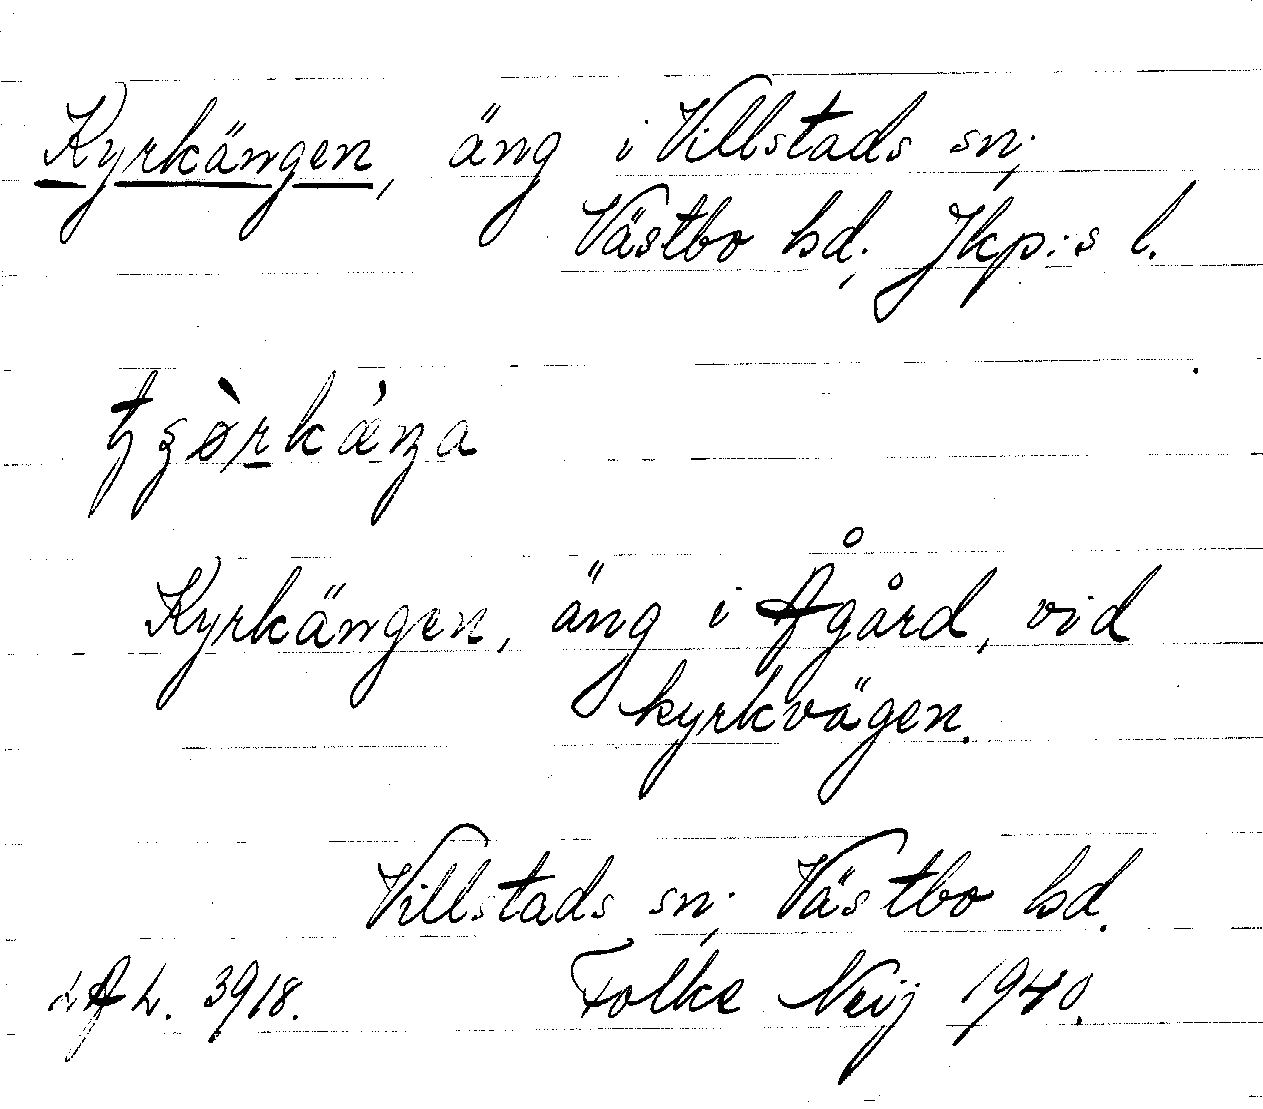 Kyrkängen, äng i Villstads sn;
Västbo hd; Jkp:s l.
Kyrkängen, äng i Ågård, vid
kyrkvägen.
Villstads sn; Västbo hd.
LAL. 3918. Folke Neij 1940.